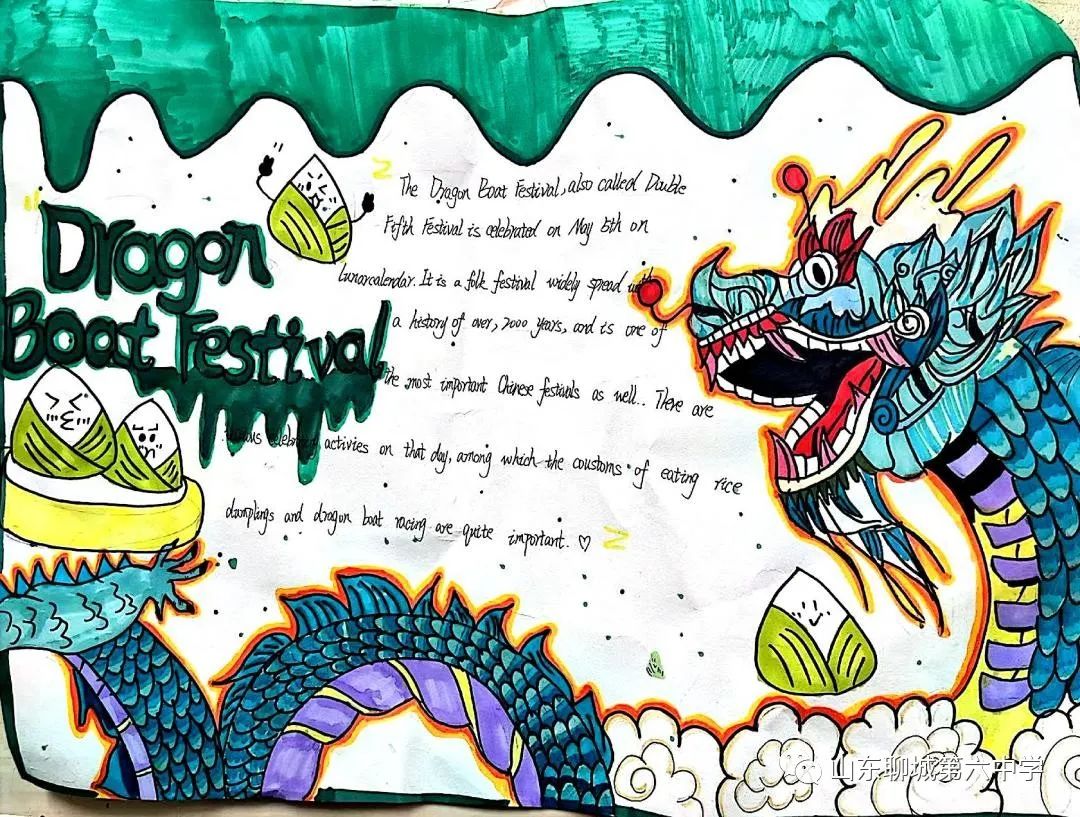 Dragon
Boat Festival
The Dragon Boat Festival, also called Double
Fifth Festival is celebrated on May 5th on
lunarcalendar. It is a folk festival widely spread with
a history of over, 2000 years, and is one of
the most important Chinese festivals as well.. There are
activies on that day, among which the coustoms of eating rice
dumplings and dragon boat racing are quite important. ♡
山东聊城第六中学